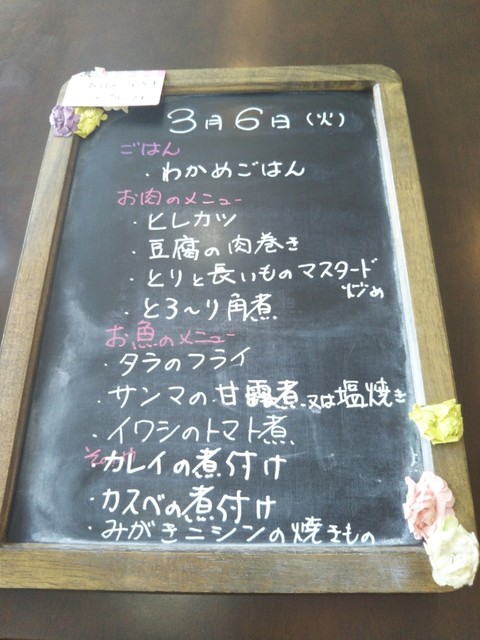 3月6日(火)
ごはん
・わかめごはん
お肉のメニュー
・ヒレカツ
・豆腐の肉巻き
・とりと長いものマスタード
炒め
・とろ〜り角煮
お魚のメニュー
・タラのフライ
・サンマの甘露煮又は塩焼き
・イワシのトマト煮
・カレイの煮付け
・カスベの煮付け
・みがきニシンの焼きもの